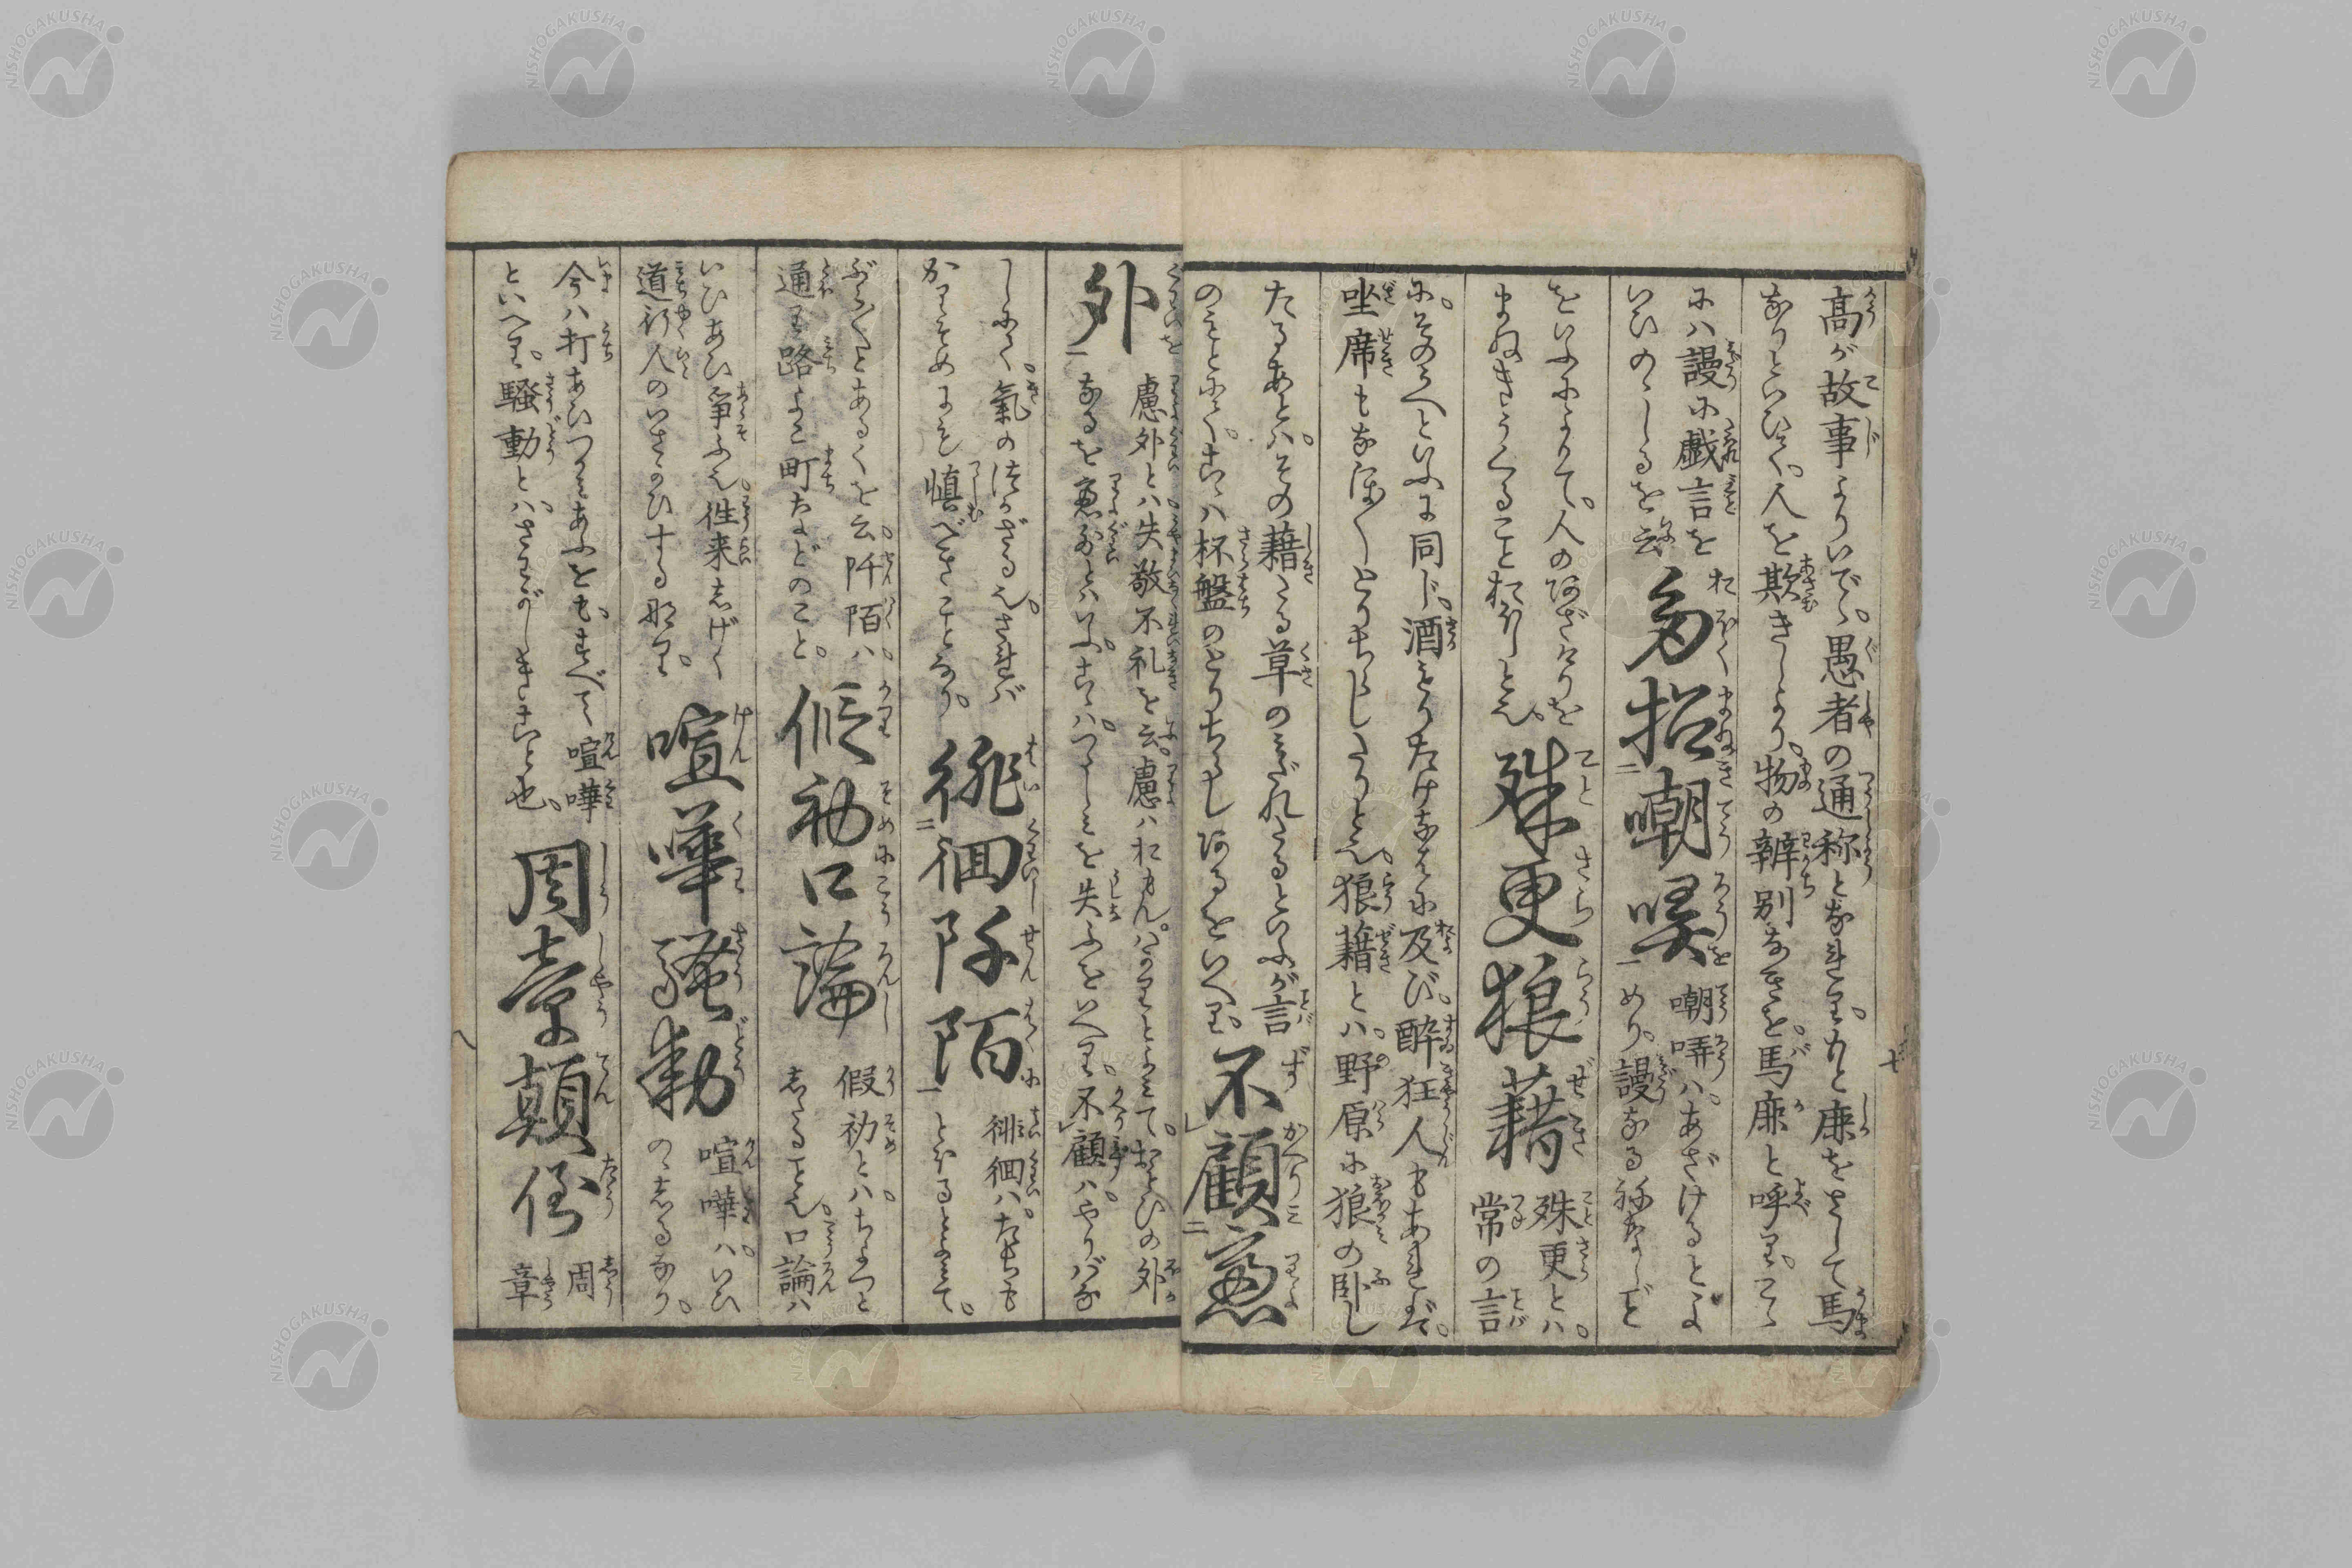 高が故事よりいでゝ愚者の通称となれり。もと鹿をさして馬
なりといひて。人を欺きしより。物の辨別なきを。馬鹿と呼り。こゝ
にハ謾に戯言を
いひのゝしるを云
多招嘲哢
嘲哢ハ。あざけるとよ
めり。謾なる
をいふによりて。人のあざけりを
まねきうくること おほしと也。
殊更狼藉
殊更とハ。
常の言
に。そのうへといふに同じ。酒もりたけなはに及び。酔狂人もあれば。
坐席もなほ〳〵とりちらしたりと也。狼藉とハ。野原に狼の臥し
たるあとハ。その藉たる草のみだれたるといふが言
のもとにて。こゝハ杯盤のとりちらしあるをいへり。
不顧慮
外
慮外とハ。失敬不礼を云。慮ハおもんばかりとよみて。おもひの外
なるを慮外とハいふ。こゝハ。つゝしみを失ふをいへり。不顧ハ。やりばな
しにて。氣のつかざる也。されバ
かりそめにも慎べきことなり。
徘徊阡陌
徘徊ハ。たちも
とほるとよみて。
ぶら〳〵とあるくを云。阡陌ハ。
通り路よこ町などのこと。
假初口論
假初とハ。ちよつと
したること也。口論ハ
いひあひ争ふ也。徃来しげく
道行人のいさかひする那り。
喧嘩騒動
喧嘩ハ。いひ
のゝしるなり。
今ハ打あひつかみあふをも。すべて喧嘩
といへり。騒動とハ。さわがしきこと也。
周章顛倒
周
章